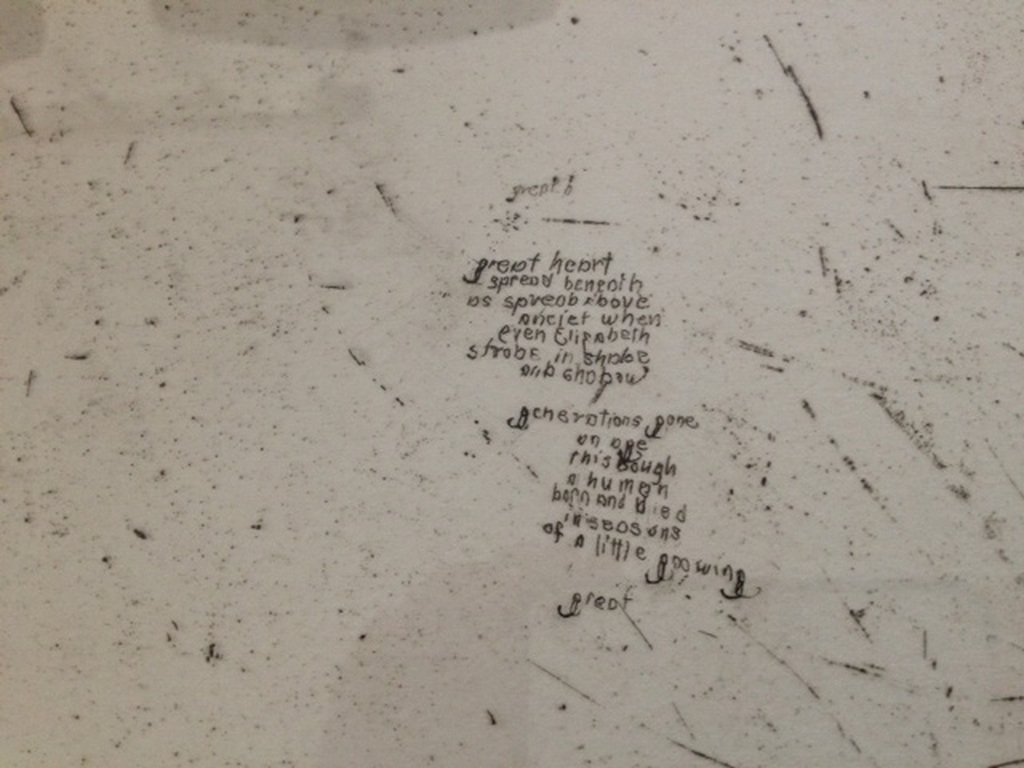 great h
great heart
spread beneath
as spread above
ancient when
even Elizabeth
strode in shade
and shadow
generations gone
an age
this bough
a human
born and died
in seasons
of a little growing
great